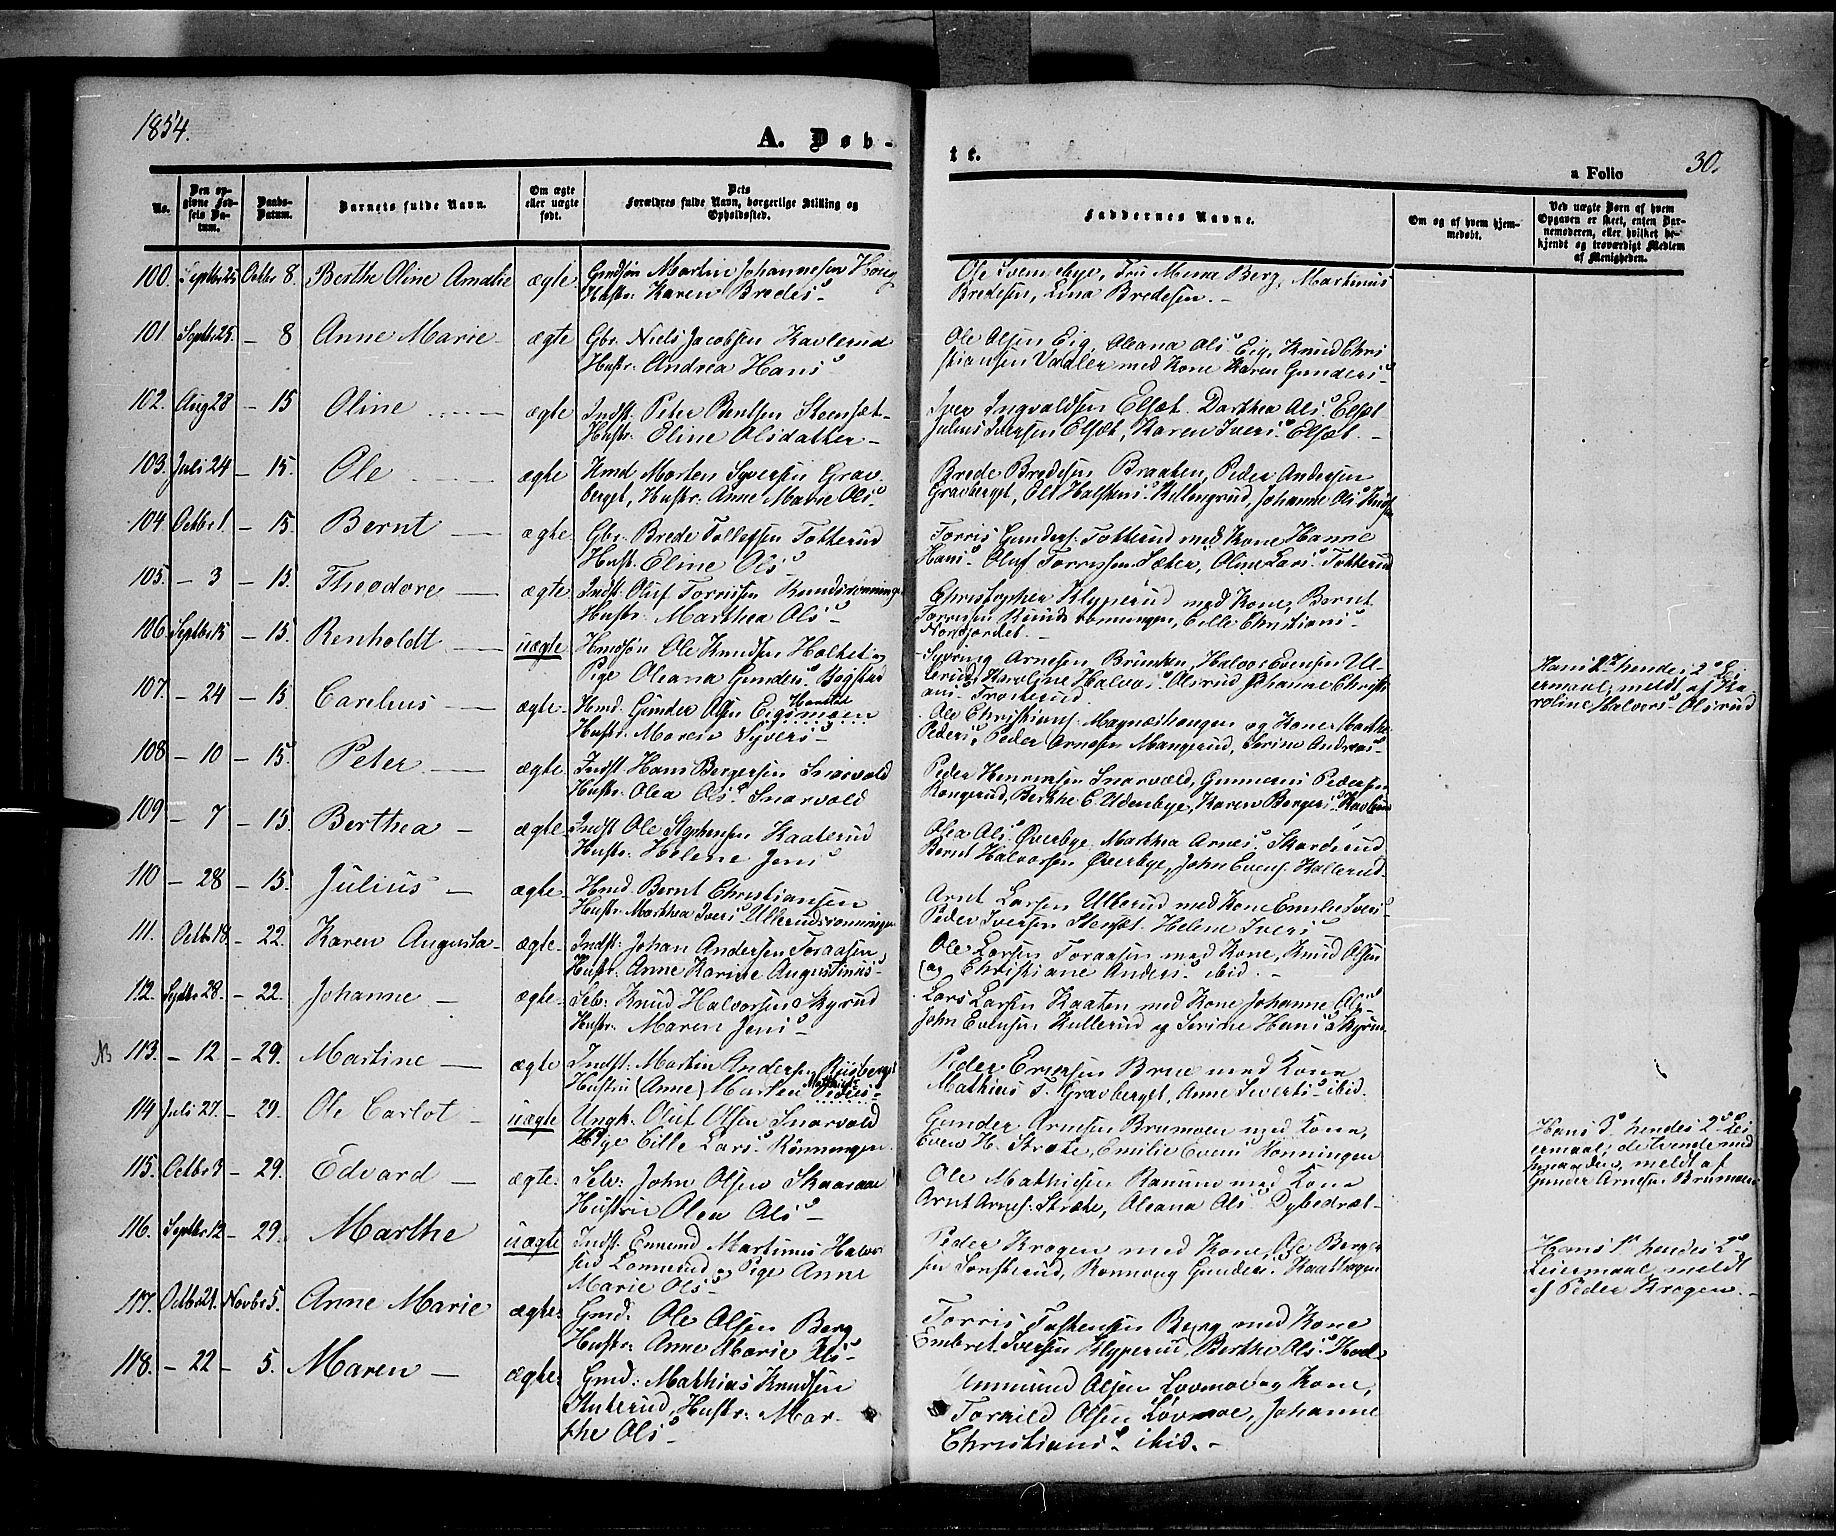 1854.
A. Døb-
te.
a Folio
30.
No.
Den op-
givne Fød-
sels Da-
tum.
Daabs-
Datum.
Barnets fulde Navn.
Om ægte
eller uægte
født.
Dets
Forældres fulde Navn, borgerlige Stilling og
Opholdssted.
Faddernes Navne.
Om og af hvem hjem-
medøbt.
Ved uægte Børn af hvem
Opgaven er skeet, enten Bar-
nemoderen, eller hvilket be-
kjendt og troværdigt Medlem
af Menigheden.
100. Octbr 8. Berthe Oline Amalie ægte Gmdsøn Martin Johannesen
Hustr: Karen Bredes
Berg, Martinus
Bredesen, Lina Bredesen. -
101 Septbr 25. - 8 Anne Marie - ægte Gbr. Niels Jacobsen Kavlerud
Hustr: Andrea Hans
Ole Olsen Eig, Oleana Ols Eig, Knud Chri
stiansen med Kone Karen Gunders
102. Aug 28 - 15 Oline ægte Indst. Peter Bentsen Steensæt
Hustr: Eline Olsdatter -
Iver Ingvaldsen Elsæt. Dorthea Ols Elsæt
Julius Iversen Elsæt, Karen Ivers Elsæt. -
103. Juli 24 - 15. Ole ægte Hmd Morten Syversen Grav
berget, Hustr: Anne Marie Ols
Brede Bredesen Braaten, Peder Andersen
Gravberget, Johanne Ols
104 Octbr 1 - 15. Bernt - ægte Gbr. Brede Tollefsen Totterud
Hust. Eline Ols
Torris Gunders. Totterud med Kone Hanne
Hans Oluf Torrissen Sæter, Oline Lars Totterud
105. - 3 - 15. Theodore - ægte Indst Oluf Torrissen
Hustr: Marthea Ols
Christopher Klyperud med Kone, Bernt
Torrissen Cille Christians
106 Septbr 15 - 15. Renholdt - uægte Hmdsøn Ole Knudsen Holtet og
Pige Oleana Gunders Bogstad
Arnesen Halvor Evensen Ul-
lerud, Karoline Halvors Olsrud Johanne Christi
ans
Hans 2 hendes 2
ermaal, meldt af Ka
roline Halvors Olsrud
107. - 24 - 15 Carelius - ægte Hmd. Gunder Olsen
Hustr: Maren Syvers
Ole Christians. og Kone Marthe
Peders, Peder Arnesen Mangerud, Serine Andreas
108 - 10 - 15. Peter - ægte Indst Hans Bergersen Snarvold
Hustr: Olea Ols Snarvold
Peder Henrensen Snarvold, Pedersen
Rongerud, Berthe E. Udenbye, Karen Bergers
109 - 7 - 15. Berthea - ægte Indst Ole Stephensen Kaaterud
Hustr: Helene Jens
Olea Ols Øverbye, Marthea Arnes Skarderud
Bernt Halvorsen Øverbye, John Evens. Kullerud
110 - 28 - 15. Julius - ægte Hmd. Bernt Christiansen
Hustr: Marthea Ivers Ullerudsrønningen
Arnt Larsen Ullerud med Kone Emilie Ivers
Peder Iversen Stensæt Helene Ivers
111. Octbr 18. - 22. Karen Augusta - ægte Indst: Johan Andersen Toraasen
Hustr: Anne Karine Augustinus
Ole Larsen Toraasen med Kone, Knud Olsen
(og Christiane Anders ibid. -
112. Septbr 28. - 22. Johanne - ægte Selv: Knud Halvorsen Skyrud
Hustr: Maren Jens
Lars Larsen Kaaten med Kone Johanne
John Evensen Kullerud og Serine Hans Skyrud
NB 113. - 12 - 29. Martine - ægte Indst: Martin Andersen Riisberget
Hustru (Anne) Marthea Peders
Peder Ericsen Brue med Kone
Mathias T. Gravberget, Anne Siverts ibid.
114 Juli 27. - 29. Ole Carlot - uægte Ungk: Oluf Olsen Snarvold
Pige Cille Lars Rønningen
Gunder Arnesen Brumoen med Kone,
Even H. Stræte, Emilie Evens Rønningen
Hans 3 hendes 2 Lei
ermaal,
meldt af
Gunder Arnesen Brumoen
115. Octbr 9 - 29. Edvard - ægte. Selv: John Olsen Skaaraae
Hustru Olea Ols -
Ole Mathisen Ranum med Kone
Arnt Arnes. Stræte, Oleana Ols Dybedræt
116. Septbr 12 - 29. Marthe uægte Indst: Emund Martinus Halvor
sen og Pige Anne
Marie Ols
Peder Krogen med Kone, Ole Berger
sen Rønnoug Gunders
Hans 1 hendes 2
Leiermaal, meldt
af Peder Krogen. -
117. Octbr 21. Novbr 5. Anne Marie ægte. Gmd: Ole Olsen Berg
Hustr: Anne Marie Ols
Torris Torstensen Berg med Kone
Embret Iversen Klyperud, Berthe Ols
118. - 22 - 5. Maren - ægte. Gmd: Mathias Knudsen
Hustr: Mar-
the Ols
Ammund Olsen Løvmoe og Kone,
Torkild Olsen Løvmoe, Johanne
Christians ibid. -